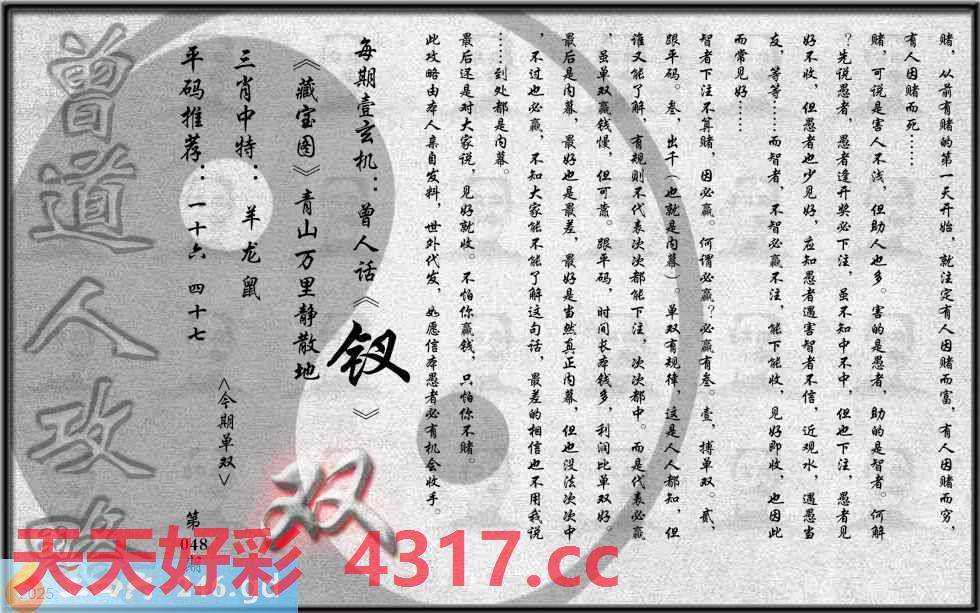 赌，从前有赌的第一天开始，就注定有人因赌而富，有人因赌而穷，
有人因赌而死……
赌，可说是害人不浅，但助人也多。害的是愚者，助的是智者。何解
？先说愚者，愚者逢开奖必下注，虽不知中不中，但也下注，愚者见
好不收，但愚者也少见好，应知愚者遇害智者不信，近观水，遇愚当
友，等等……而智者，不智必赢不注，能下能收，见好即收，也因此
而常见好……
智者下注不算赌，因必赢。何谓必赢？必赢有叁。壹，搏单双。贰，
跟平码。叁，出千（也就是内幕）。单双有规律，这是人人都知，但
谁又能了解，有规则不代表次次都能下注，次次都中。而是代表必赢
，虽单双赢钱慢，但可靠。跟平码，时间长本钱多，利润比单双好。
最后是内幕，最好也是最差，最好是当然真正内幕，但也没法次次中
，不过也必赢，不知大家能不能了解这句话，最差的相信也不用我说
……到处都是内幕。
最后还是对大家说，见好就收。不怕你赢钱，只怕你不赌。
此攻略由本人亲自发料，世外代发，如愿信本愚者必有机会收手。
每期壹玄机：曾人话《钗》
《藏宝图》青山万里静散地
三肖中特：羊龙鼠
<今期单双>
双
平码推荐：一十六 四十七
第
048
期
曾道人攻略
天天好彩 4317.cc
2025
246.gd